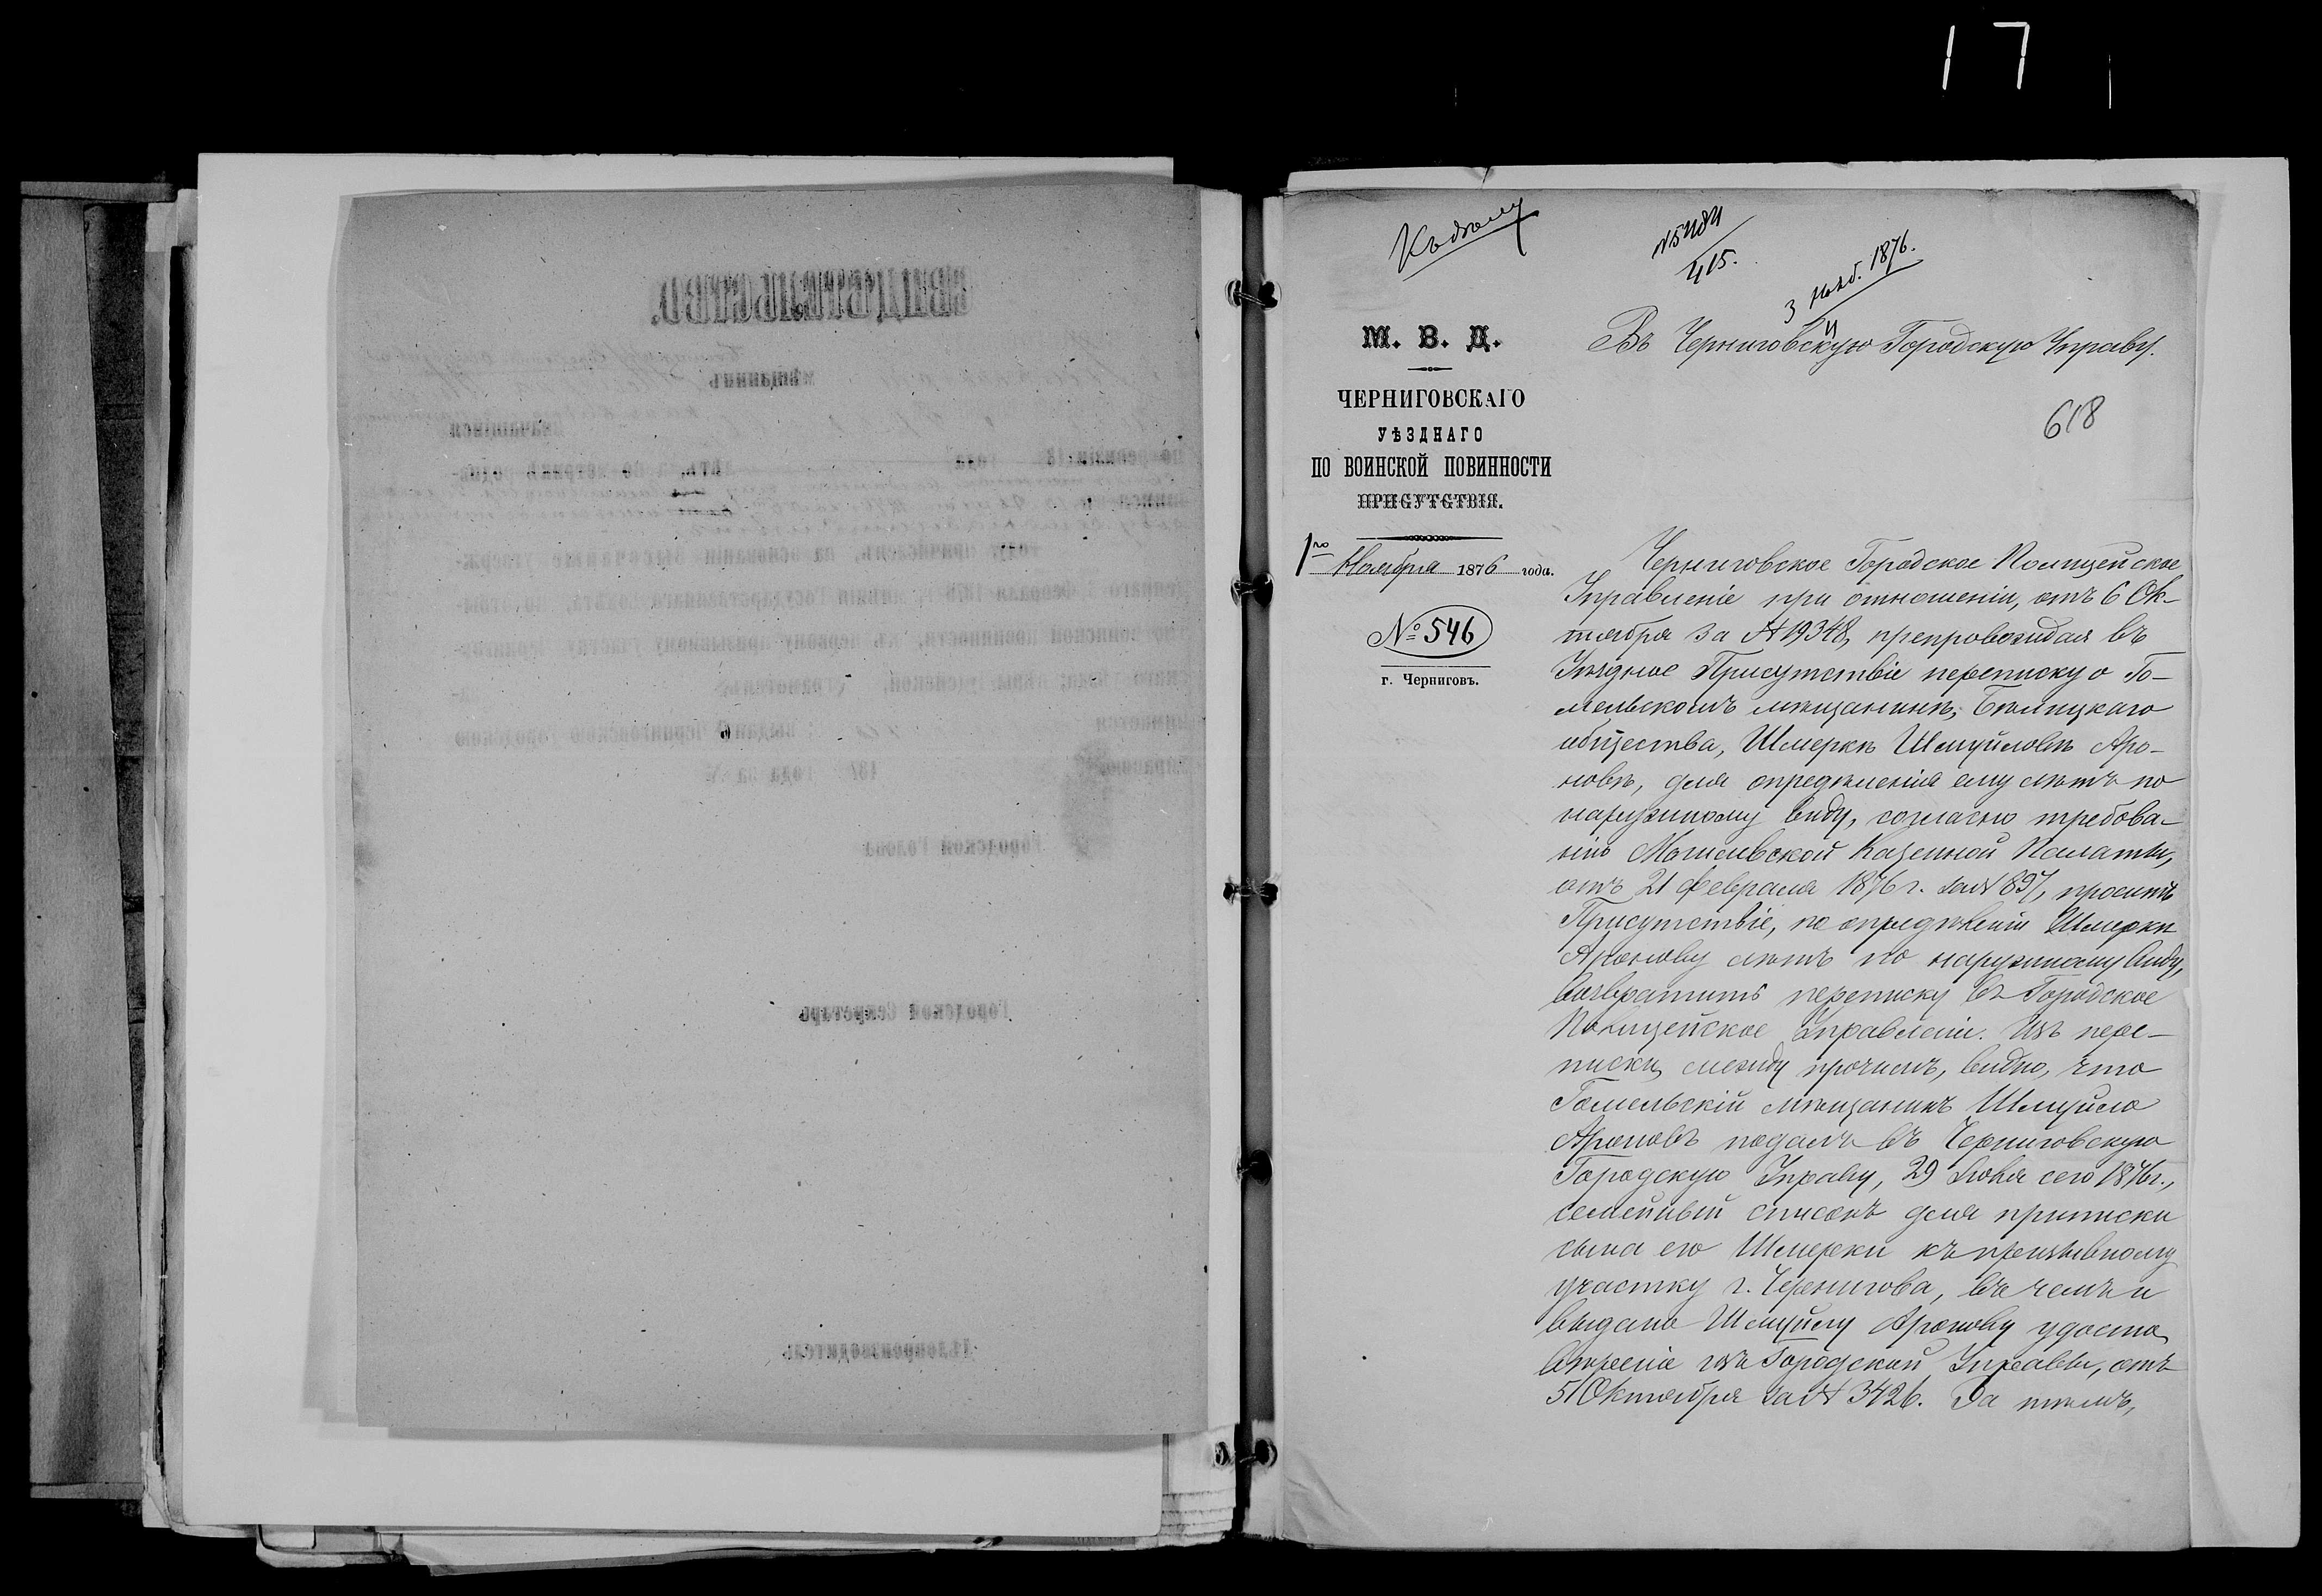 17
Къ дѣлу
№5484
415.
3 Нояб. 1876.
М. В. Д.
ЧЕРНИГОВСКАГО
УѢЗДНАГО
ПО ВОИНСКОЙ ПОВИННОСТИ
ПРИСУТСТВІЯ.
1го Ноября 1876 года.
№ 546
г. Черниговъ.
Въ Черниговскую Городскую Управу.
618
Черниговское Городское Полицейское
Управленіе при отношеніи, отъ 6 Ок-
тября за № 19348, препровождая въ
Уѣздное Присутствіе переписку о Го-
мельскомъ мѣщанинѣ, Бѣлицкаго
общества, Шмеркѣ Шмуйловѣ Аро-
новѣ, для опредѣленія ему лѣтъ по
наружному виду, согласно требова-
нію Могилевской Казенной Палаты,
отъ 21 Февраля 1876 г. за № 897, проситъ
Присутствіе, по опредѣленіи Шмеркѣ
Аронову лѣтъ по наружному виду,
возвратить переписку въ Городское
Полицейское Управленіе. Изъ пере-
писки, между прочимъ, видно, что
Гомельскій мѣщанинъ Шмуйло
Ароновъ подалъ въ Черниговскую
Городскую Управу, 29 Іюня сего 1876 г.,
семейный списокъ для приписки
сына его Шмерки къ призывному
участку г. Чернигова, въ чемъ и
выдано Шмуйлу Аронову удосто
вѣреніе изъ Городской Управы, отъ
5 Октября за № 3426. За тѣмъ,
СВИДѢТЕЛЬСТВО.
мѣщанинъ
значащійся
по ревизіи 18 года лѣтъ, а по метрикѣ родив-
шійся
году, причисленъ, на основаніи Высочайше утверж-
деннаго февраля мнѣнія Государственнаго Совѣта, по отбы-
ванію воинской повинности, къ первому призывному участку Чернигов-
скаго уѣзда; вѣры Іудейской, грамотенъ, за-
нимается выдано Черниговскою городскою
управою 187 года за №
Городской Голова
Городской Секретарь
Дѣлопроизводитель